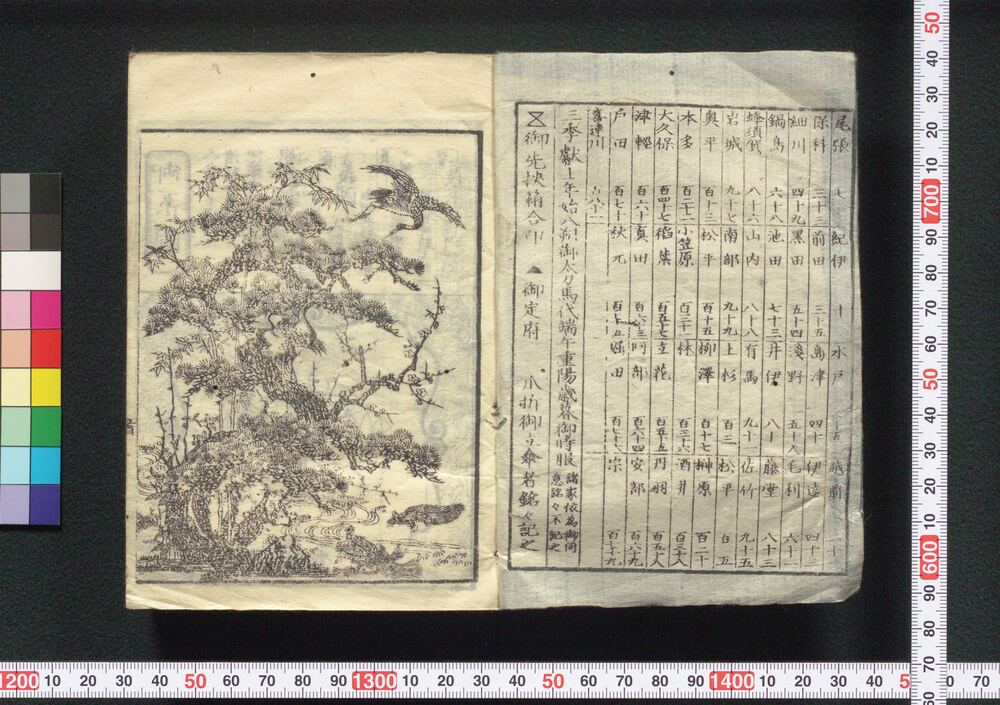 尾張 七 紀伊 十 水戸 十五 越前 二十
保科 三十三 前田 三十五 島津 四十 伊達 四十三
細川 四十九 黒田 五十四 浅野 五十八 毛利 六十二
鍋島 六十八 池田 七十三 井伊 八十 藤堂 八十三
蜂須賀 八十六 山内 八十八 有馬 九十 佐竹 九十五
岩城 九十七 南部 九十九 上杉 百三 松平 百五
奥平 百十三 松平 百十五 柳澤 百十七 榊原 百二十
本多 百二十二 小笠原 百三十一 林 百三十六 酒井 百三十八
大久保 百四十七 稲葉 百五十七 立花 百五十五 丹羽 百五十八
津軽 百六十 真田 百六十三 阿部 百六十四 安部 百六十九
戸田 百七十 秋元 百七十五 堀田 百七十六 宗 百七十九
喜連川 百八十二
三季献上年始八朔御太刀馬代端午重陽歳暮御時服 諸家依為御同意銘々不記之
御先挟箱合印 御定府 爪折御立傘者銘々記之